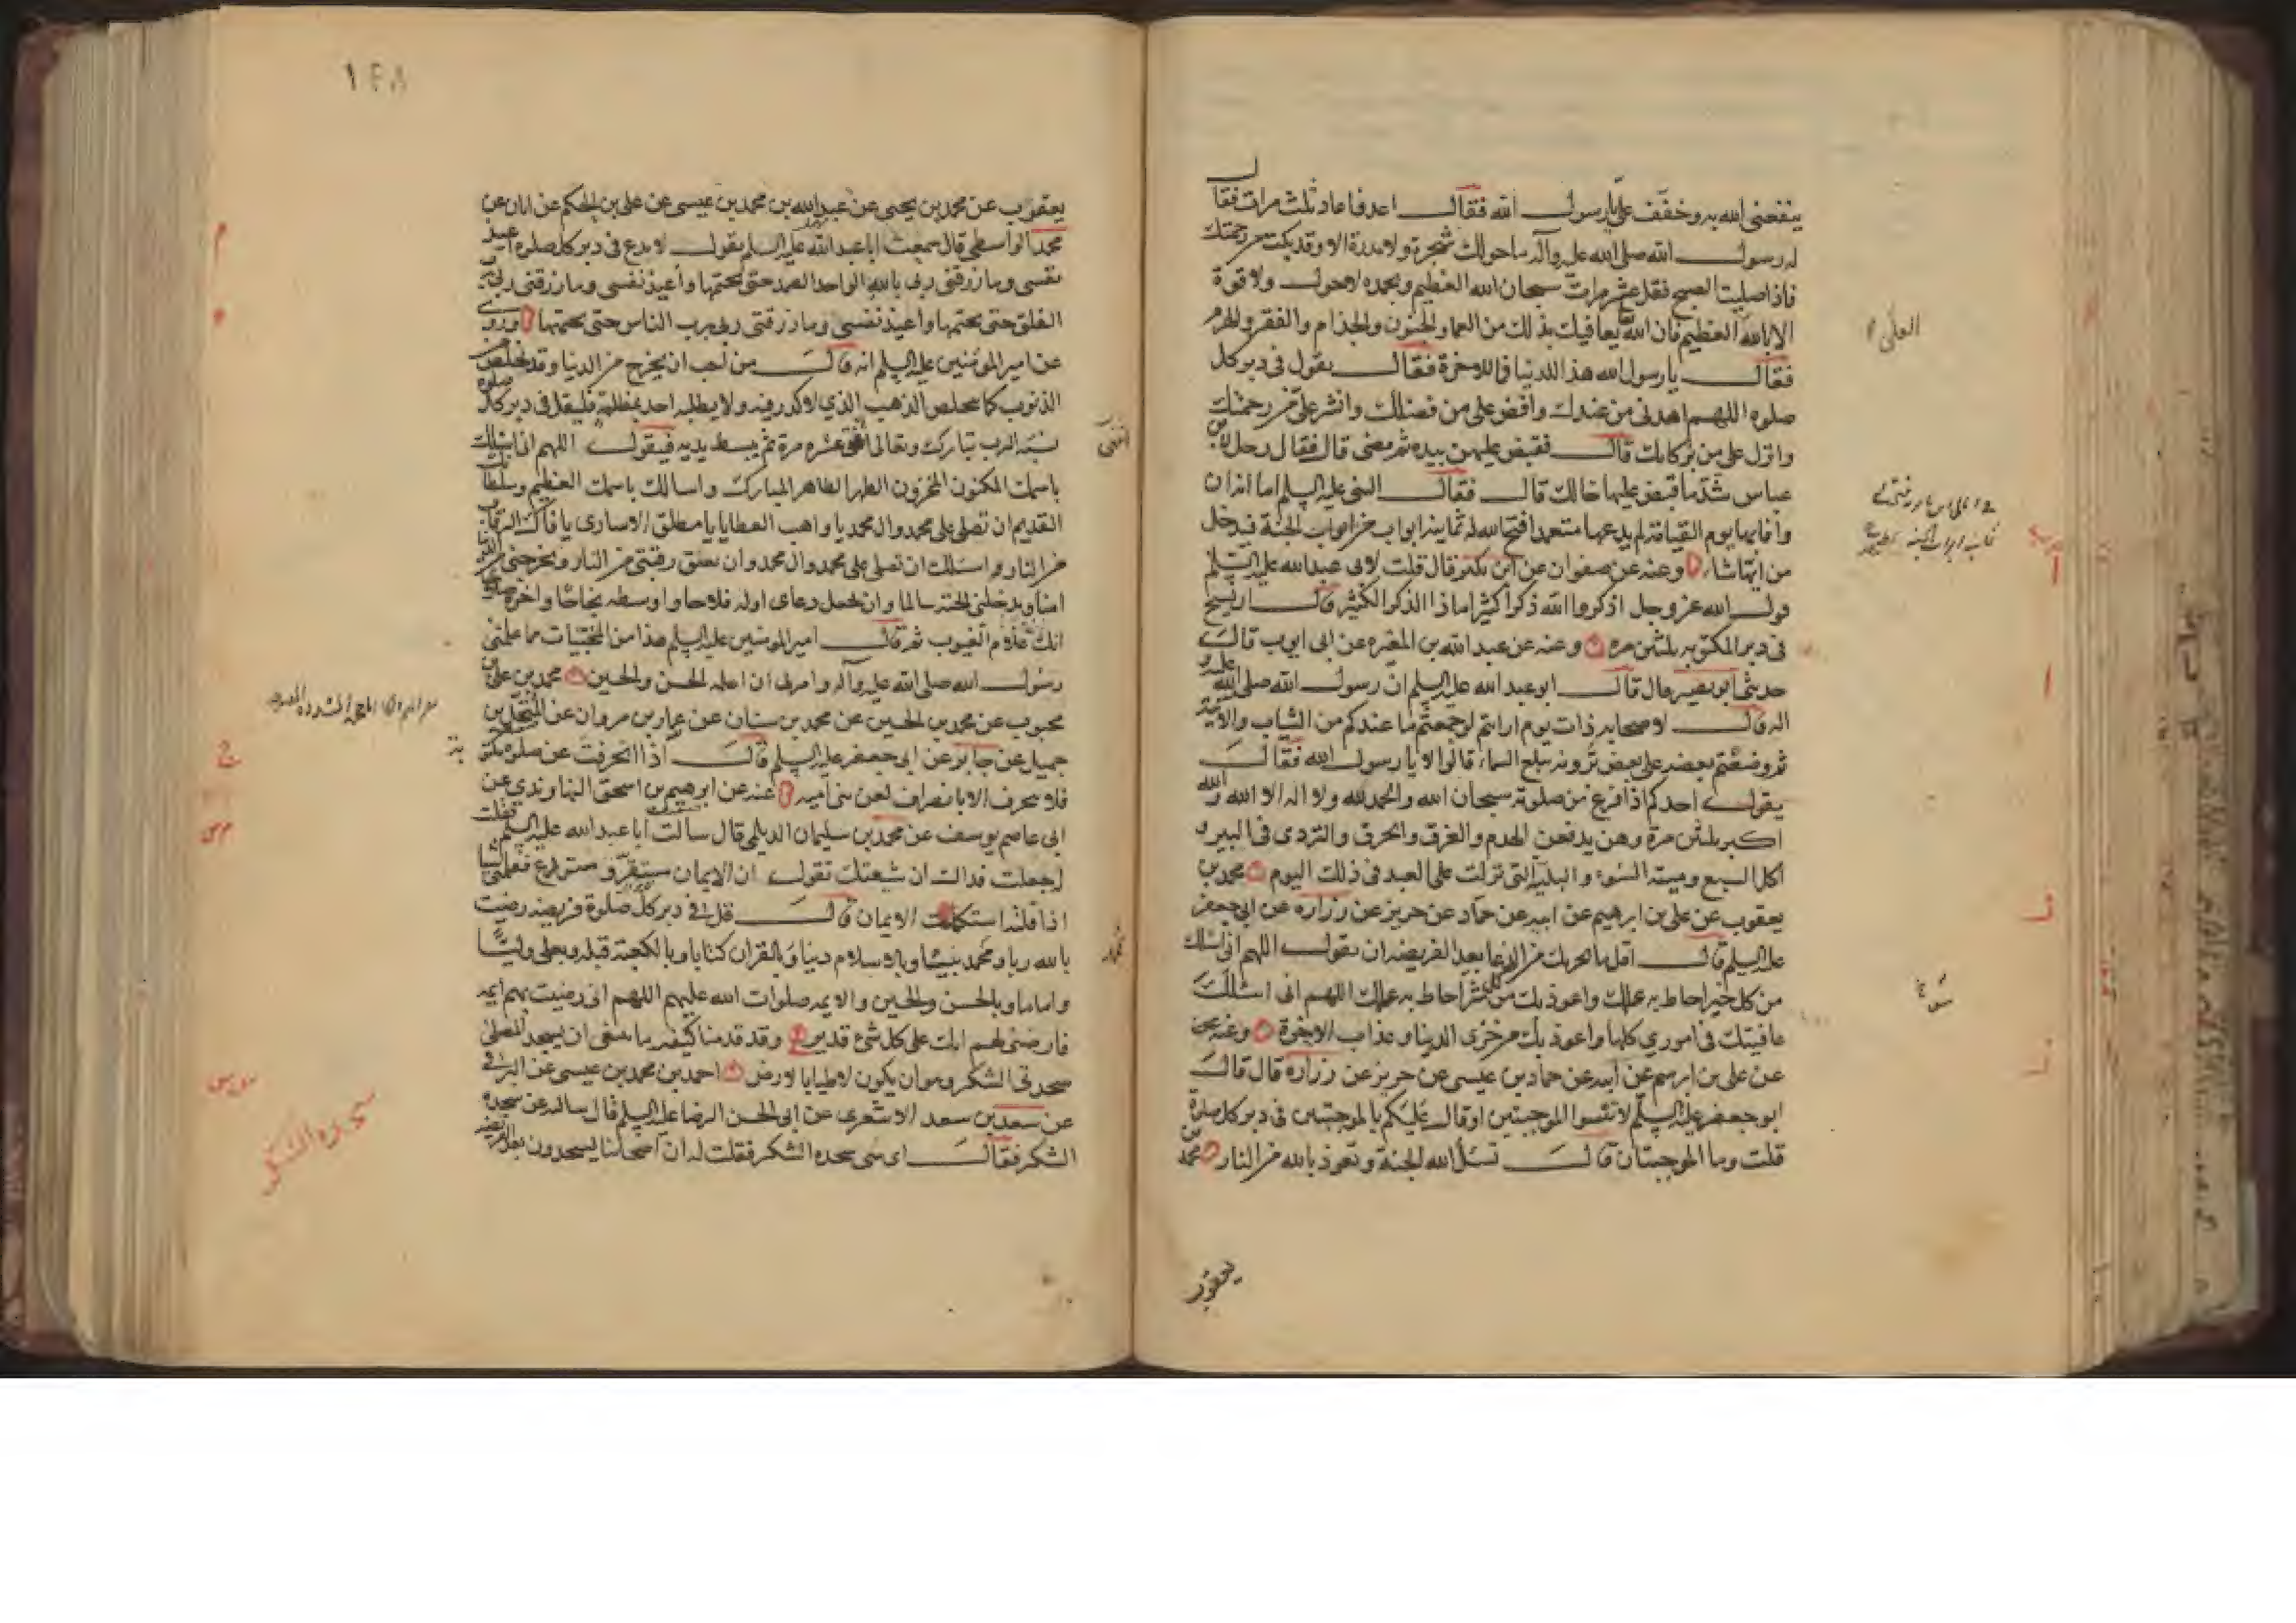 ينفعنى الله به وخفف على يا رسول الله فقال اعد فاعاد ثلث مرات فقال
له رسول الله صلى الله عليه وآله ما حولك شجرة ولا مدرة الا وقد بكت من رحمتك
فاذا صليت الصبح فقل عشر مرات سبحان الله العظيم وبحمده لا حول ولا قوة
الا بالله العظيم فان الله يعافيك بذلك من العما والجنون والجذام والفقر والهرم
فقال يا رسول الله هذا للدنيا فما للاخرة فقال يقول فى دبر كل
صلوه اللهم اهدنى من عندك وافض على من فضلك وانشر على من رحمتك
وانزل على من بركاتك قال فقبض عليهن بيده ثم مضى قال فقال رجل لابن
عباس شد ما قبض عليها خالك قال فقال النبى عليه السلم اما انه ان
وافا بها يوم القيامة لم يدعها متعمدا فتح الله له ثمانية ابواب من ابواب الجنة فيدخل
من ايها شاء وعنه عن صفوان عن ابن بكير قال قلت لابى عبد الله عليه السلم
قول الله عز وجل اذكروا الله ذكرا كثيرا ماذا الذكر الكثير قال ان يسبح
فى دبر المكتوبه ثلثين مره وعنه عن عبد الله بن المغيره عن ابى ايوب قال
حدثنى ابو بصير قال قال ابو عبد الله عليه السلم ان رسول الله صلى الله عليه و
اله قال لاصحابه ذات يوم ارايتم لو جمعتم ما عندكم من الثياب والآنية
ثم وضعتم بعضه على بعض ترونه يبلغ السماء قالوا لا يا رسول الله فقال
يقول احدكم اذا فرغ من صلوته سبحان الله والحمد لله ولا اله الا الله والله
اكبر ثلثين مرة وهن يدفعن الهدم والغرق والحرق والتردى فى البير و
اكل السبع وميتة السوء والبلية التى نزلت على العبد فى ذلك اليوم محمد بن
يعقوب عن على بن ابرهيم عن ابيه عن حماد عن حريز عن زراره عن ابى جعفر
عليه السلم قال اقل ما يجزيك من الدعا بعد الفريضه ان تقول اللهم انى اسئلك
من كل خير احاط به علمك واعوذ بك من كل شر احاط به علمك اللهم انى اسئلك
عافيتك فى امورى كلها واعوذ بك من خزى الدنيا وعذاب الاخرة وعنه عن
عن على بن ابرهيم عن ابيه عن حماد بن عيسى عن حريز عن زراره قال قال
ابو جعفر عليه السلم لا تنسوا الموجبتين او قال عليكم بالموجبتين فى دبر كل صلوة
قلت وما الموجبتان قال تسئل الله الجنة وتعوذ بالله من النار محمد بن
يعقوب
١٤٨
يعقوب عن محمد بن يحيى عن عبد الله بن محمد بن عيسى عن على بن الحكم عن ابان عن
محمد الواسطى قال سمعت ابا عبد الله عليه السلم يقول لا تدع فى دبر كل صلوه اعيذ
نفسى وما رزقنى ربى بالله الواحد الصمد حتى تختمها واعيذ نفسى وما رزقنى ربى برب
الفلق حتى تختمها واعيذ نفسى وما رزقنى ربى برب الناس حتى تختمها وروى
عن امير المؤمنين عليه السلم انه قال من احب ان يخرج من الدنيا وقد تخلص من
الذنوب كما يتخلص الذهب الذى لا كدر فيه ولا يطلبه احد بمظلمة فليقل فى دبر كل صلوه
نسبة الرب تبارك وتعالى اثنى عشره مرة ثم يبسط يديه فيقول اللهم انى اسئلك
باسمك المكنون المخزون الطهر الطاهر المبارك واسالك باسمك العظيم وسلطانك
القديم ان تصلى على محمد وال محمد يا واهب العطايا يا مطلق الاسارى يا فاك الرقاب
من النار واسئلك ان تصلى على محمد وال محمد وان تعتق رقبتى من النار وتخرجنى من الدنيا
امنا وتدخلنى الجنة سالما وان تجعل دعاى اوله فلاحا واوسطه نجاحا واخره صلاحا
انك علام الغيوب ثم قال امير المومنين عليه السلم هذا من المخبيات مما علمنى
رسول الله صلى الله عليه وآله وامرنى ان اعلمه الحسن والحسين محمد بن على بن
محبوب عن محمد بن الحسين عن محمد بن سنان عن عمار بن مروان عن المنخل بن
جميل عن جابر عن ابى جعفر عليه السلم قال اذا انحرفت عن صلوه مكتوبة
فلا تنحرف الا بانصراف لعن بنى اميه عنه عن ابرهيم بن اسحق النهاوندى عن
ابى عاصم يوسف عن محمد بن سليمان الديلمى قال سالت ابا عبد الله عليه السلم فقلت
له جعلت فداك ان شيعتك تقول ان الايمان مستقر ومستودع فعلمنى شيئا
اذا قلته استكملت الايمان قال قل فى دبر كل صلوة فريضه رضيت
بالله ربا وبمحمد نبيا وبالاسلام دينا وبالقران كتابا وبالكعبة قبلة وبعلى وليا
واماما وبالحسن والحسين والايمه صلوات الله عليهم اللهم انى رضيت بهم ايمه
فارضنى لهم انك على كل شئ قدير وقد قدمنا كيفيه ما ينبغى ان يسجد المصلى
سجدتى الشكر وهو ان يكون لاطيا بالارض احمد بن محمد بن عيسى عن البرقى
عن سعد بن سعد الاشعرى عن ابى الحسن الرضا عليه السلم قال سالته عن سجده
الشكر فقال اى شى سجده الشكر فقلت له ان اصحابنا يسجدون بعد الفريضه
سجده الشكر